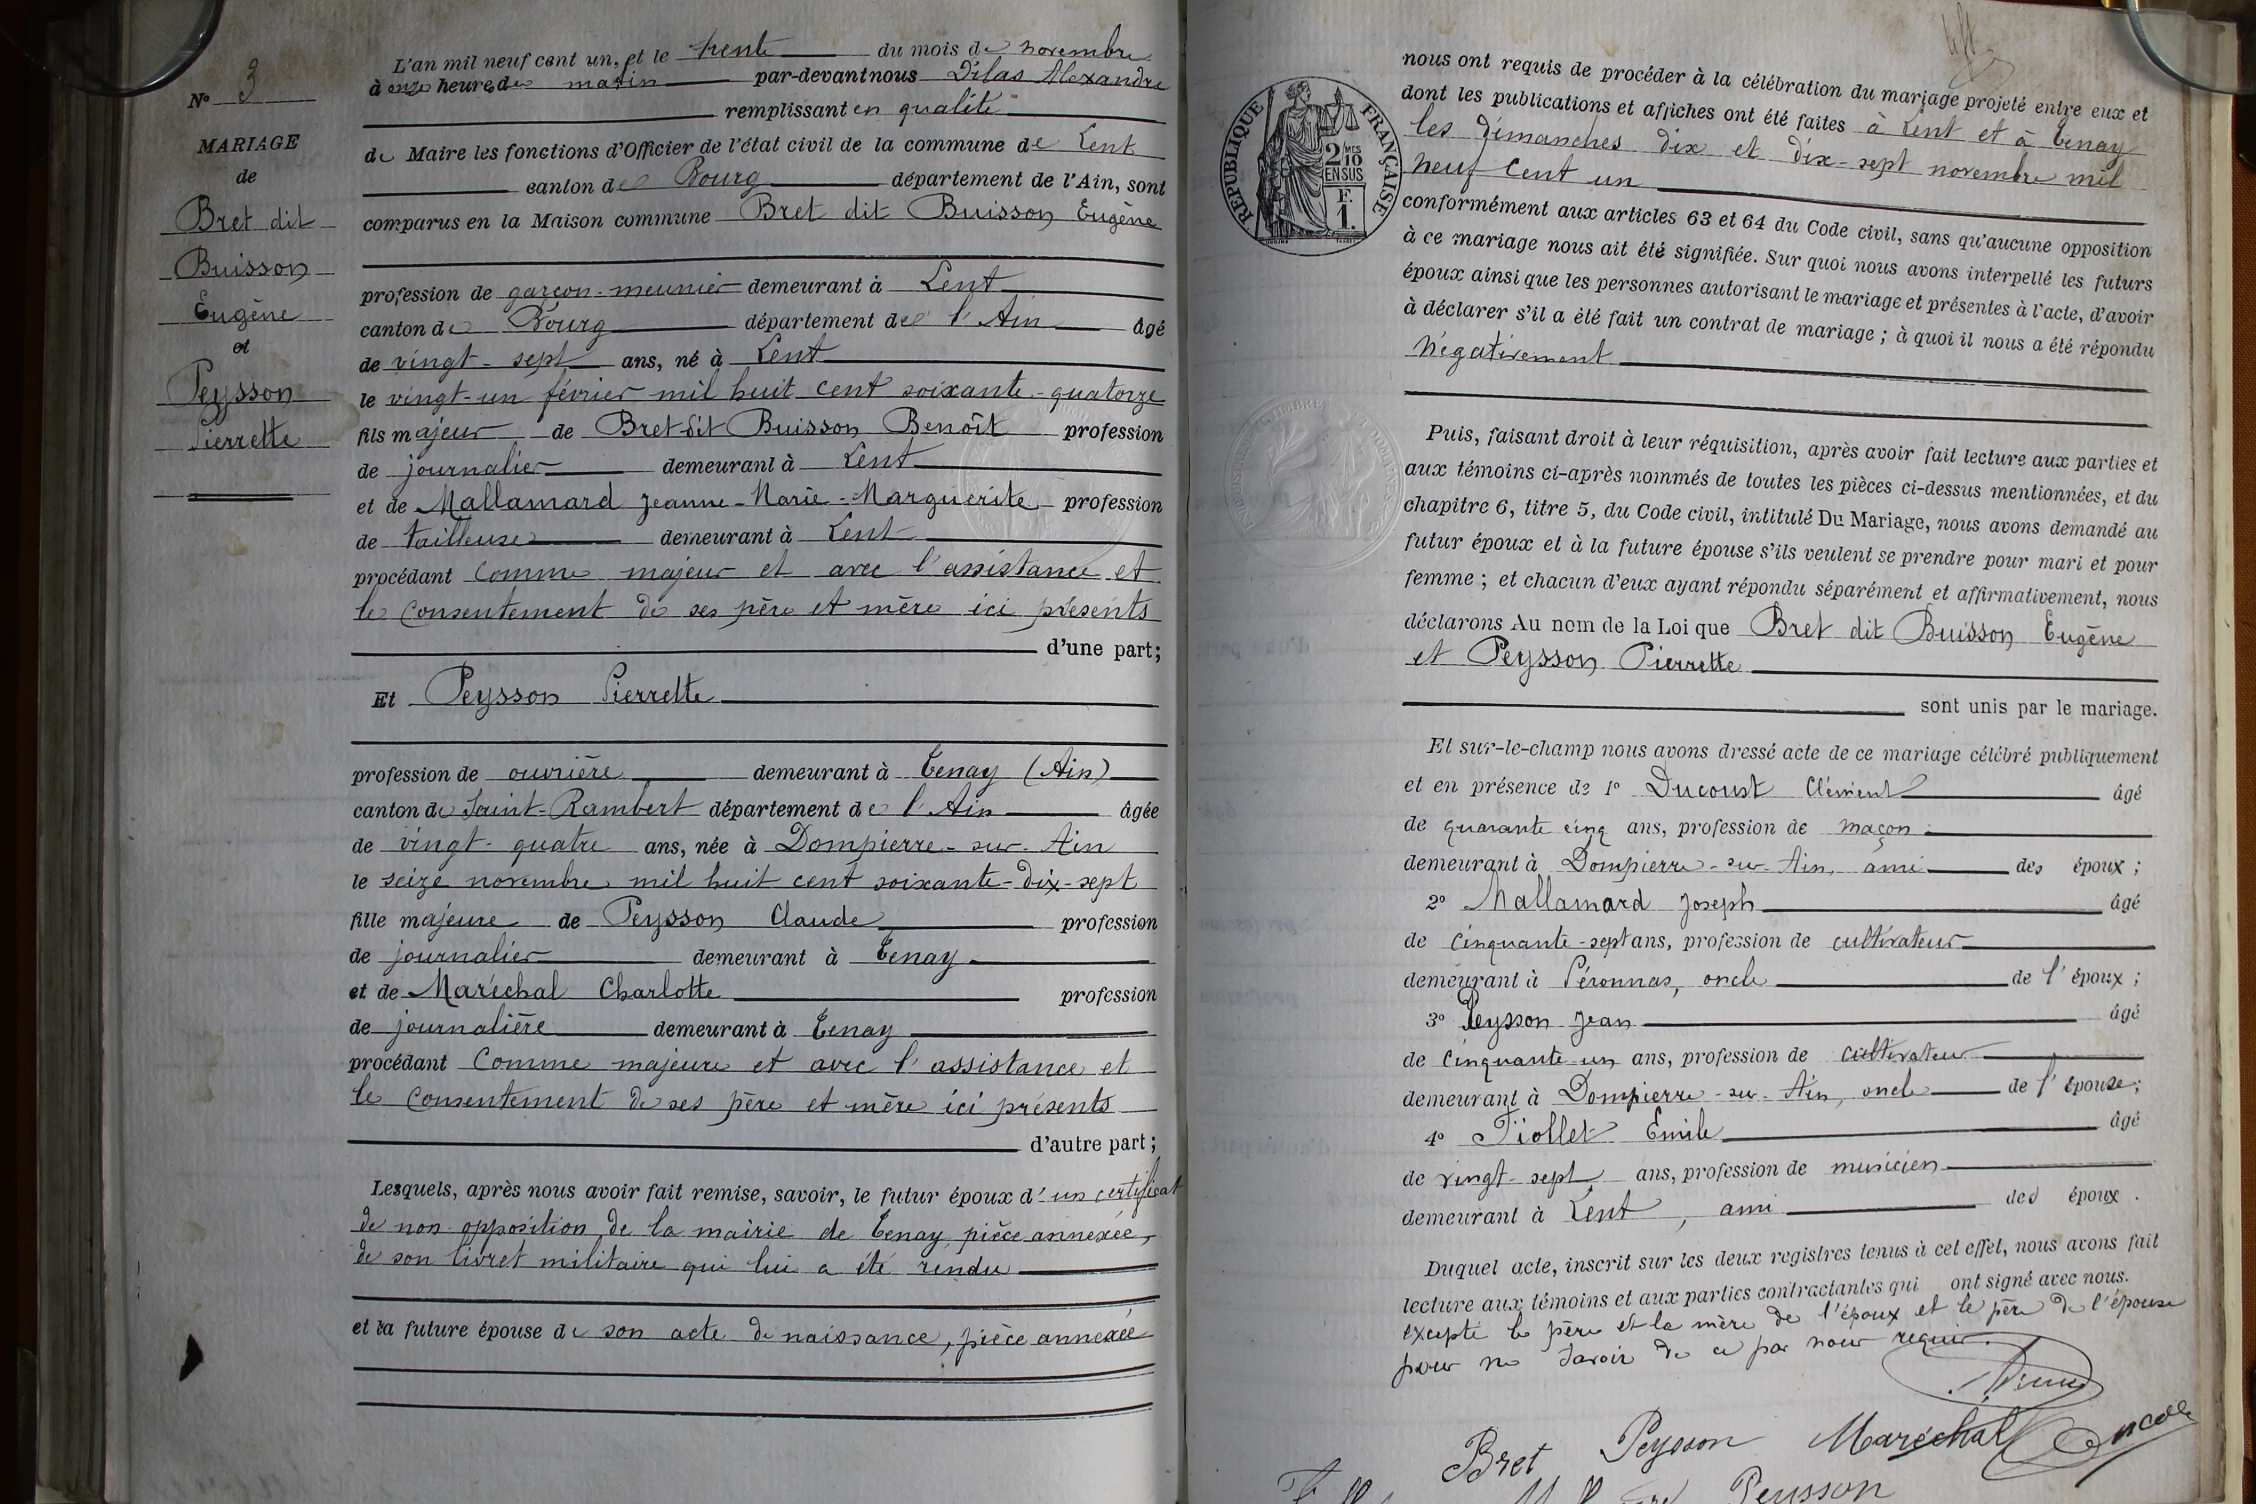 N° 3
MARIAGE
de
Bret dit
Buisson
Eugène
et
Peysson
Pierrette
L'an mil neuf cent un, et le trente du mois de novembre
à onze heures de matin par-devant nous Dilas Alexandre
remplissant en qualité
de Maire les fonctions d'Officier de l'état civil de la commune de Lent
canton de Bourg département de l'Ain, sont
comparus en la Maison commune Bret dit Buisson Eugène
profession de garçon-meunier demeurant à Lent
canton de Bourg département de l'Ain âgé
de vingt-sept ans, né à Lent
le vingt-un février mil huit cent soixante-quatorze
fils majeur de Bret dit Buisson Benoît profession
de journalier demeurant à Lent
et de Mallamard Jeanne-Marie-Marguerite profession
de tailleuse demeurant à Lent
procédant comme majeur et avec l'assistance et
le consentement de ses père et mère ici présents
d'une part;
Et Peysson Pierrette
profession de ouvrière demeurant à Tenay (Ain)
canton de Saint-Rambert département de l'Ain âgée
de vingt-quatre ans, née à Dompierre-sur-Ain
le seize novembre mil huit cent soixante-dix-sept
fille majeure de Peysson Claude profession
de journalier demeurant à Tenay
et de Maréchal Charlotte profession
de journalière demeurant à Tenay
procédant comme majeure et avec l'assistance et
le consentement de ses père et mère ici présents
d'autre part;
Lesquels, après nous avoir fait remise, savoir, le futur époux d'un certificat
de non-opposition de la mairie de Tenay, pièce annexée,
de son livret militaire qui lui a été rendu
et la future épouse de son acte de naissance, pièce annexée
RÉPUBLIQUE FRANÇAISE
2 MES
10
EN SUS
F.
1.
nous ont requis de procéder à la célébration du mariage projeté entre eux et
dont les publications et affiches ont été faites à Lent et à Tenay
les dimanches dix et dix-sept novembre mil
neuf cent un
conformément aux articles 63 et 64 du Code civil, sans qu'aucune opposition
à ce mariage nous ait été signifiée. Sur quoi nous avons interpellé les futurs
époux ainsi que les personnes autorisant le mariage et présentes à l'acte, d'avoir
à déclarer s'il a été fait un contrat de mariage; à quoi il nous a été répondu
négativement
Puis, faisant droit à leur réquisition, après avoir fait lecture aux parties et
aux témoins ci-après nommés de toutes les pièces ci-dessus mentionnées, et du
chapitre 6, titre 5, du Code civil, intitulé Du Mariage, nous avons demandé au
futur époux et à la future épouse s'ils veulent se prendre pour mari et pour
femme; et chacun d'eux ayant répondu séparément et affirmativement, nous
déclarons Au nom de la Loi que Bret dit Buisson Eugène
et Peysson Pierrette
sont unis par le mariage.
Et sur-le-champ nous avons dressé acte de ce mariage célébré publiquement
et en présence de 1° Ducoust Clément âgé
de quarante cinq ans, profession de maçon
demeurant à Dompierre-sur-Ain, ami des époux;
2° Mallamard Joseph âgé
de cinquante-sept ans, profession de cultivateur
demeurant à Péronnas, oncle de l'époux;
3° Peysson Jean âgé
de cinquante-un ans, profession de cultivateur
demeurant à Dompierre-sur-Ain, oncle de l'épouse;
4° Fiollet Emile âgé
de vingt-sept ans, profession de musicien
demeurant à Lent, ami des époux.
Duquel acte, inscrit sur les deux registres tenus à cet effet, nous avons fait
lecture aux témoins et aux parties contractantes qui ont signé avec nous.
excepté le père et la mère de l'époux et le père de l'épouse
pour ne savoir de ce par nous requis.
Bret Peysson Maréchal
Peysson